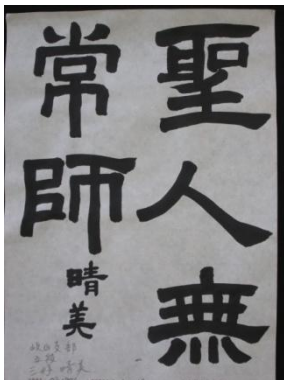 聖人無
常師
晴美